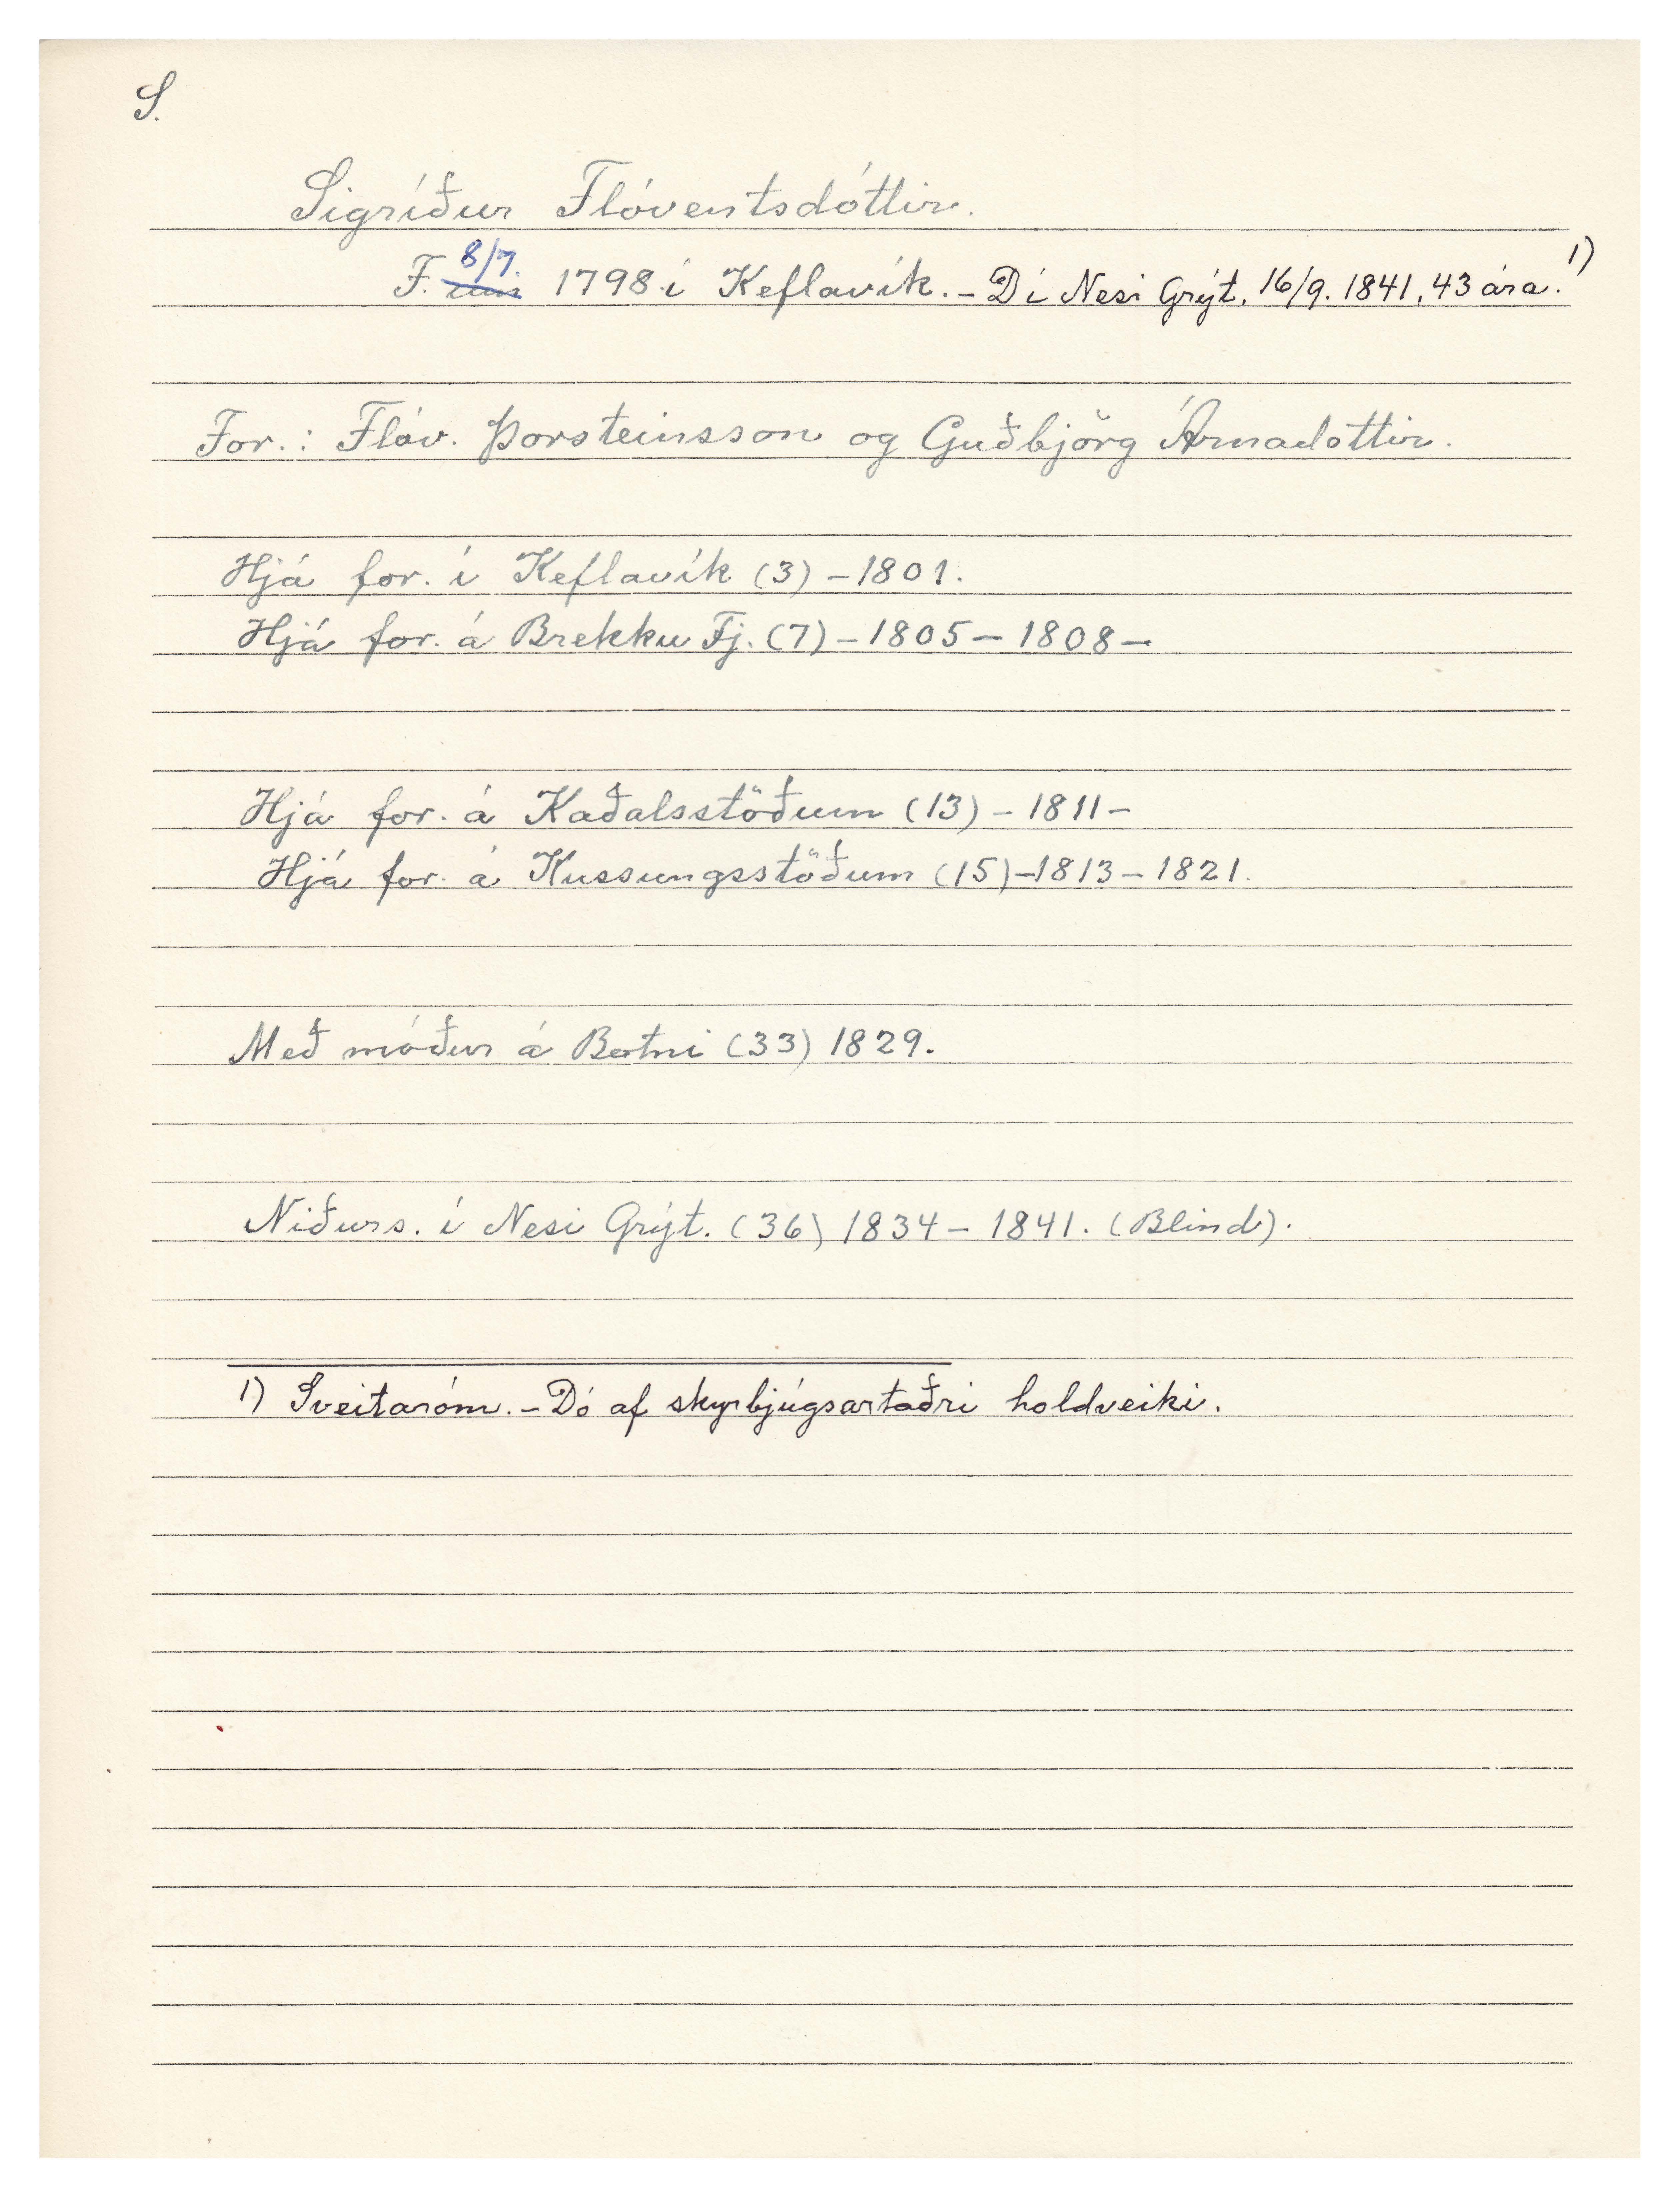 S.
Sigríður Flóventsdóttir.
F. 8/7. um 1798 í Keflavík. - D í Nesi Grýt. 16/9. 1841, 43 ára. 1)
For.: Flóv. Þorsteinsson og Guðbjörg Árnadóttir.
Hjá for. í Keflavík (3) - 1801.
Hjá for. á Brekku Fj. (7) - 1805 - 1808 -
Hjá for. á Kaðalsstöðum (13) - 1811 -
Hjá for. á Kussungsstöðum (15) - 1813 - 1821.
Með móður á Botni (33) 1829.
Niðurs. í Nesi Grýt. (36) 1834 - 1841. (Blind).
1) Sveitaróm. - Dó af skyrbjúgsartaðri holdveiki.